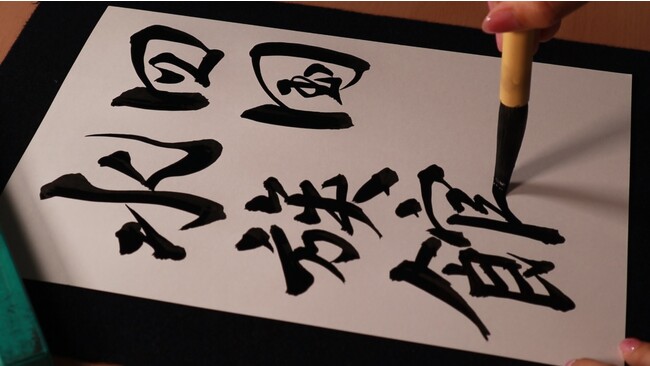 四国
水族館